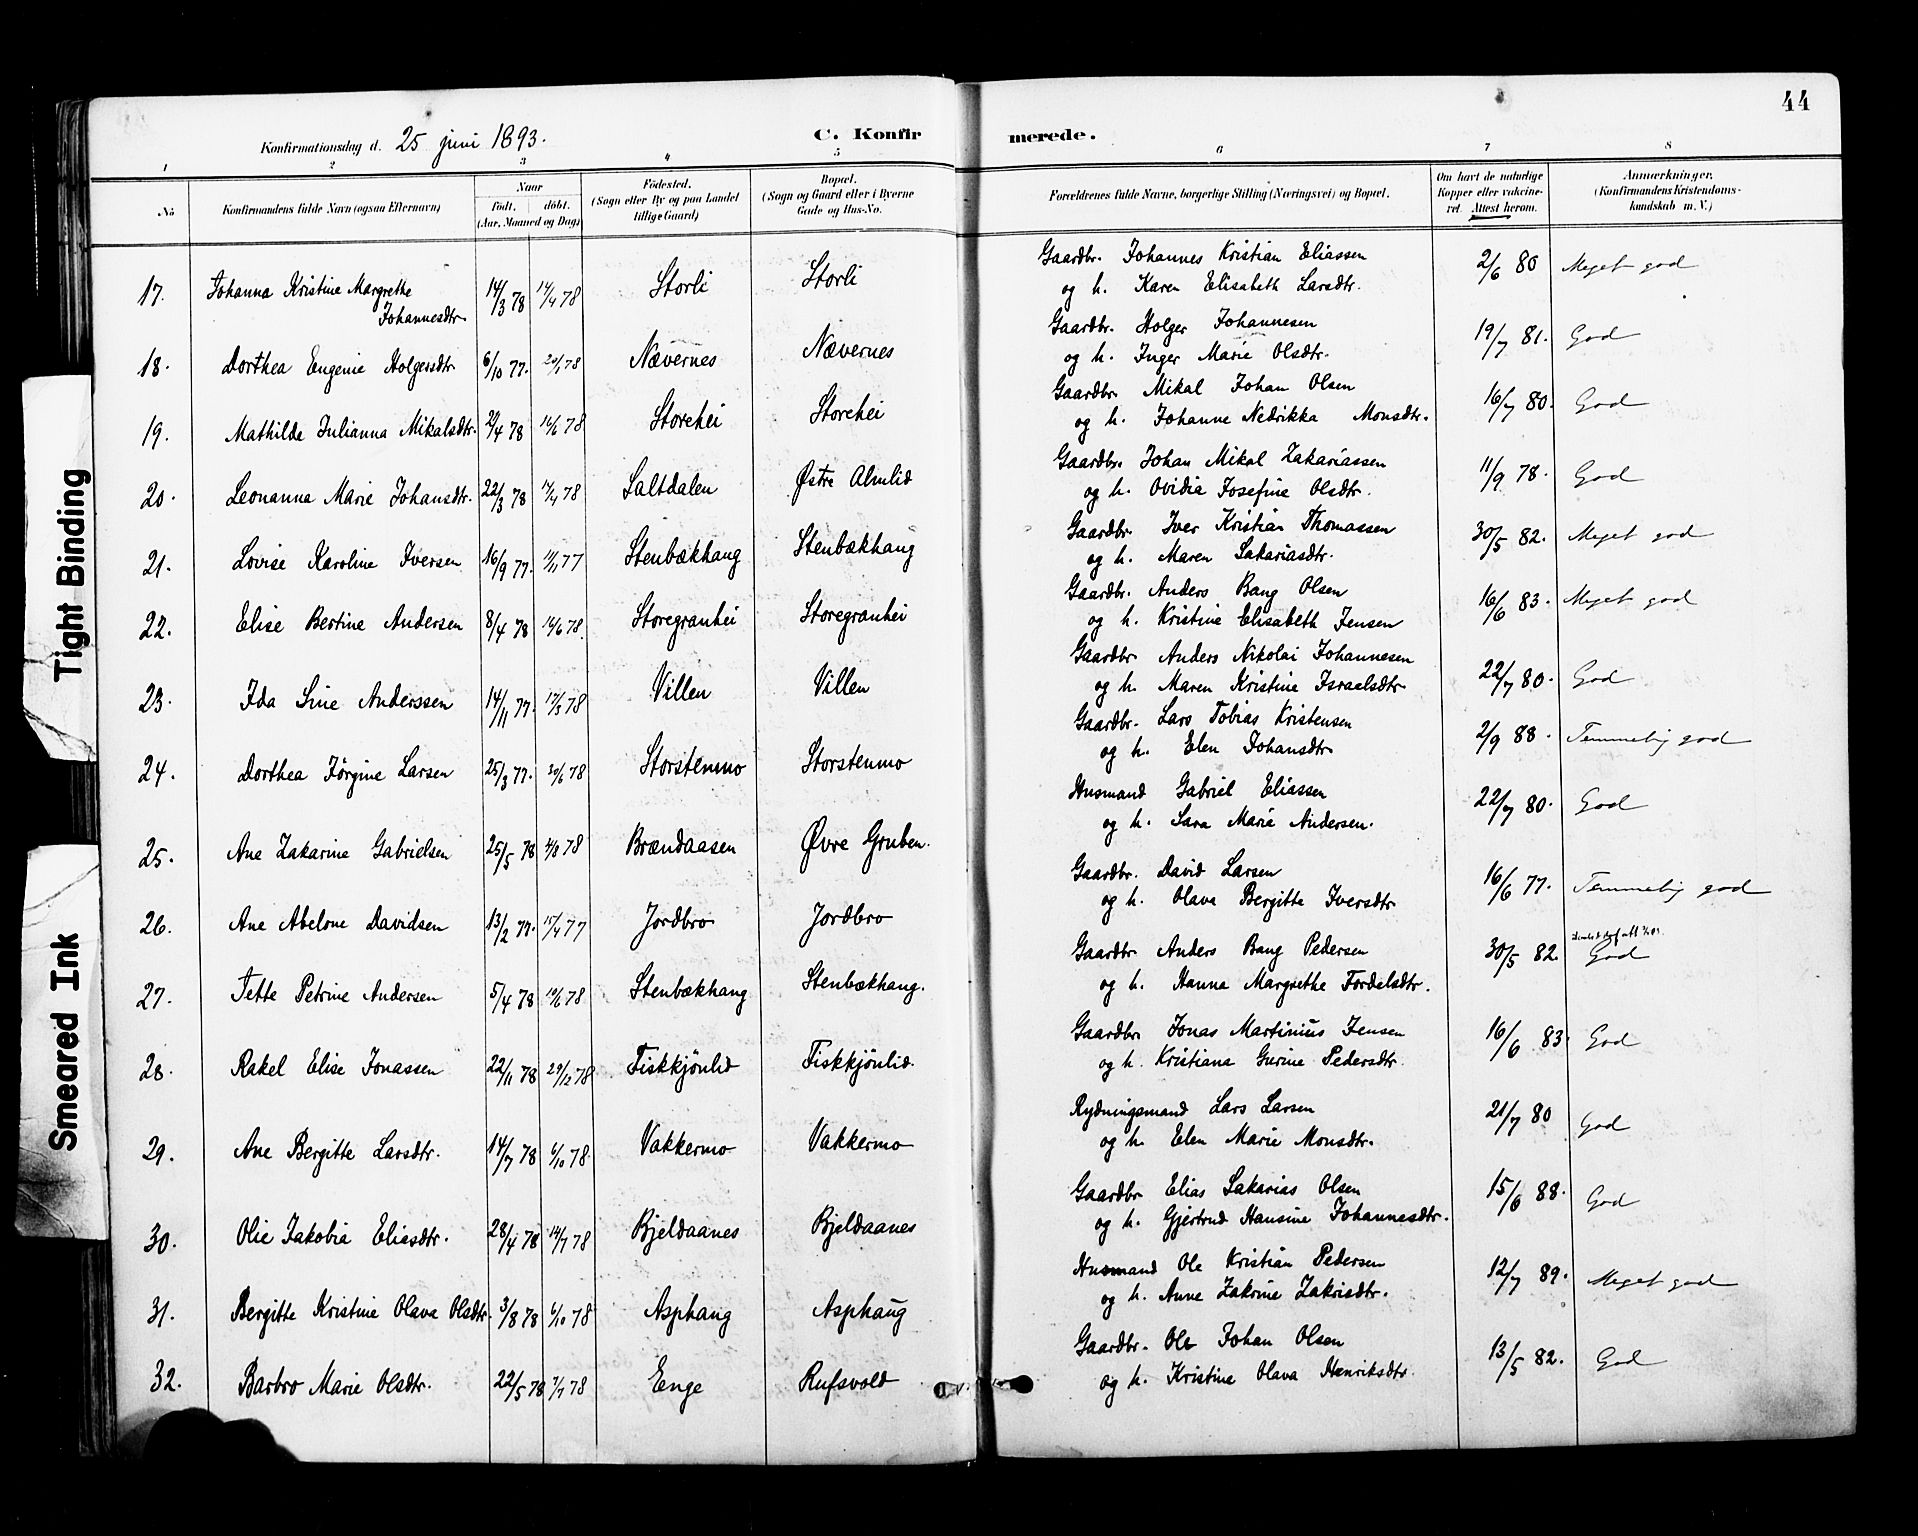 44
Konfirmationsdag d. 25 juni 1893.
C. Konfirmerede.
1 2 3 4 5 6 7 8
No
Konfirmandens fulde Navn (ogsaa Efternavn)
Naar
født. døbt.
(Aar, Maaned og Dag)
Fødested.
(Sogn eller By og paa Landet tillige Gaard)
Bopæl.
(Sogn og Gaard eller i Byerne Gade og Hus-No.
Forældrenes fulde Navne, borgerlige Stilling (Næringsvei) og Bopæl.
Om havt de naturlige Kopper eller vakcineret. Attest herom.
Anmærkninger.
(Konfirmandens Kristendomskundskab m. V.)
17. Johanna Kristine Margrethe Johannesdtr. 14/3 78 14/4 78 Storli Storli Gaardbr. Johannes Kristian Eliassen 2/6 80 Meget god
og h. Karen Elisabeth Larsdtr.
18. Dorthea Eugenie Holgersdtr 6/10 77. 20/1 78 Nævernes Nævernes Gaardbr. Holger Johannesen 19/7 81. God
og h. Inger Marie Olsdtr.
19. Mathilde Julianna Mikalsdtr. 2/4 78 16/6 78 Storehei Storehei Gaardbr. Mikal Johan Olsen 16/7 80. God
og h. Johanne Nedrikka Monsdtr.
20. Leonanna Marie Johansdtr. 22/3 78 14/4 78 Saltdalen Østre Almlid Gaardbr. Johan Mikal Zakariassen 11/9 78. God
og h. Ovidia Josefine Olsdtr.
21. Lovise Karoline Iversen 16/9 77. 11/11 77 Stenbækhaug Stenbækhaug Gaardbr. Iver Kristian Thomassen 30/5 82. Meget god
og h. Maren Sakariasdtr.
22. Elise Bertine Andersen 8/4 78 16/6 78. Storegranhei Storegranhei Gaardbr. Anders Bang Olsen 16/6 83. Meget god
og h. Kristine Elisabeth Jensen
23. Ida Sine Anderssen 14/11 77. 17/3 78 Villen Villen Gaardbr Anders Nikolai Johannesen 22/7 80. God
og h. Maren Kristine Israelsdtr.
24. Dorthea Jörgine Larsen 25/3 77. 20/6 78 Storstenmo Storstenmo Gaardbr. Lars Tobias Kristensen 2/9 88. Temmelig god
og h. Elen Johansdtr
25. Ane Zakarine Gabrielsen 25/5 78 4/8 78 Brændaasen Øvre Gruben. Husmand Gabriel Eliassen 22/7 80. God
og h. Sara Marie Andersen.
26. Ane Abelone Davidsen 13/2 77. 15/4 77 Jordbro Jordbro Gaardbr. David Larsen 16/6 77. Temmelig god
og h. Olava Bergitte Iversdtr
27. Jette Petrine Andersen 5/4 78 10/6 78 Stenbækhaug Stenbækhaug. Gaardbr Anders Bang Pedersen 30/5 82. God
og h. Hanna Margrethe Fordelsdtr.
28. Rakel Elise Jonassen 22/11 78 29/12 78 Fiskkjönlid Fiskkjönlid. Gaardbr Jonas Martinius Jensen 16/6 83. God
og h. Kristiana Gurine Pedersdtr.
29. Ane Bergitte Larsdtr. 14/7 78 6/10 78. Vakkermo Vakkermo Rydningsmand Lars Larsen 21/7 80 God
og h. Elen Marie Monsdtr.
30. Olie Jakobia Eliasdtr. 28/4 78 14/7 78 Bjeldaanes Bjeldaanes Gaardbr Elias Sakarias Olsen 15/6 88. God
og h. Gjertrud Hansine Johannesdtr.
31. Bergitte Kristine Olava Olsdtr. 3/8 78 6/10 78 Asphaug Asphaug Husmand Ole Kristian Pedersen 12/7 89. Meget god
og h. Anne Zakrine Zakrisdtr.
32. Barbro Marie Olsdtr. 22/5 78 7/7 78 Enge Rufsvold Gaardbr. Ole Johan Olsen 13/5 82. God
og h. Kristine Olava Henriksdtr.
Tight Binding
Smeared Ink